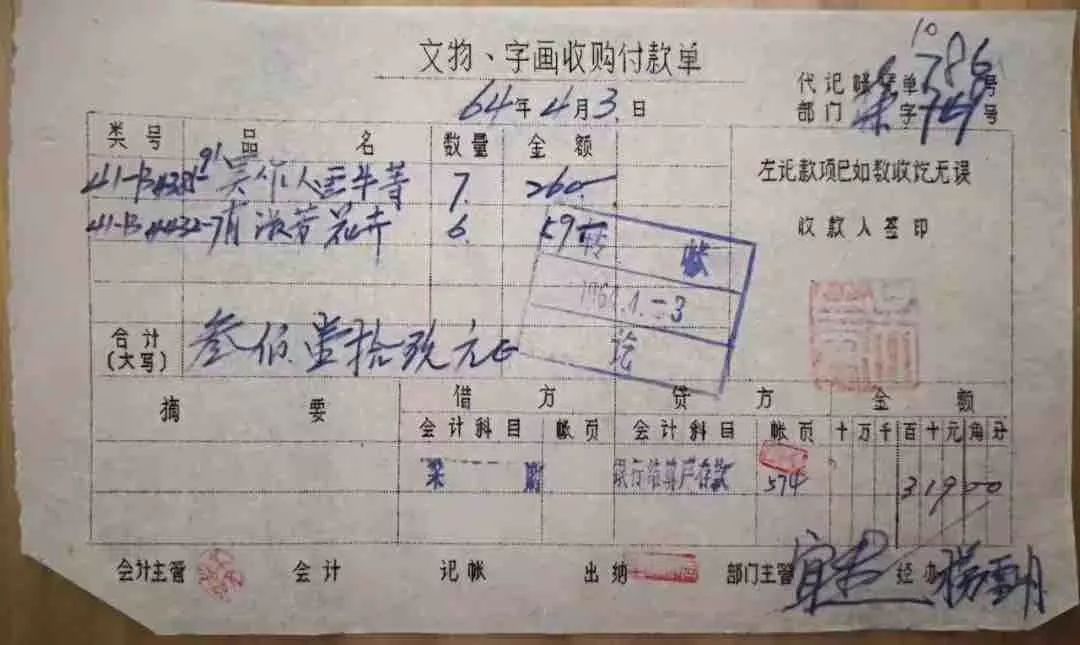 文物、字画收购付款单
10
代记帐凭单786号
64年4月3日
部门 字749号
类号 品名 数量 金额
吴作人画牛等 7. 260-
花卉 6. 59-
左记款项已如数收讫无误
收款人签印
转帐
讫
合计(大写) 叁佰壹拾玖元正
摘要 借方 贷方 金额
会计科目 帐页 会计科目 帐页 十万千百十元角分
采购 银行结算户存款 574 31900
会计主管 会计 记帐 出纳 部门主管 经办